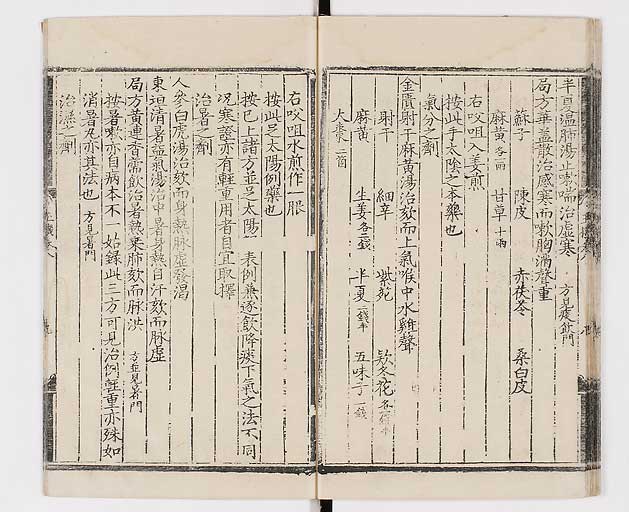 半夏温肺湯止嗽喘治虛寒 方見痰飲門
局方華盖散治感寒而嗽胸滿聲重
蘇子 陳皮 赤茯苓 桑白皮
麻黃各一兩 甘草十兩
右㕮咀入姜煎
按此手太陰之本藥也
氣分之劑
金匱射干麻黃湯治欬而上氣喉中水雞聲
射干 細辛 紫菀 欵冬花
麻黃 生姜各三錢 半夏二錢半 五味子一錢
大棗二箇
右㕮咀水煎作一服
按此足太陽例藥也
按已上諸方並足太陽一表例兼逐飲降痰下氣之法不同
况寒證亦有輕重用者自宜取擇
治暑之劑
人參白虎湯治欬而身熱脉虛發渴
東垣清暑益氣湯治中暑身熱自汗欬而脉虛
局方黃連香薷飲治暑熱乗肺欬而脉洪 方並見暑門
按暑嗽亦自病本不一姑錄此三方可見治例輕重亦殊如
消暑丸亦其法也 方見暑門
治濕之劑